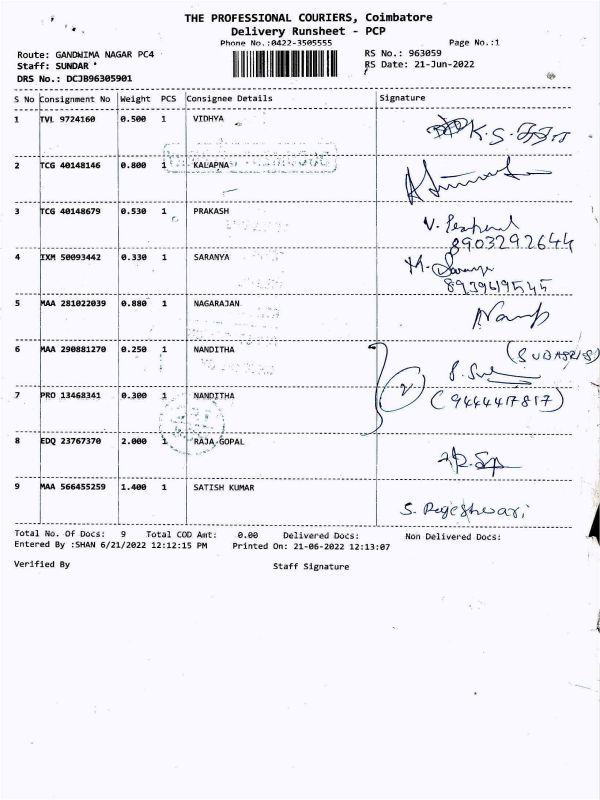 THE PROFESSIONAL COURIERS, Coimbatore
Delivery Runsheet - PCP
Phone No.:0422-3505555 Page No.:1
Route: GANDWIMA NAGAR PC4 RS No.: 963059
Staff: SUNDAR RS Date: 21-Jun-2022
DRS No.: DCJB96305901
S No Consignment No Weight PCS Consignee Details Signature
1 TVL 9724160 0.500 1 VIDHYA K.S.
2 TCG 40148146 0.800 1 KALAPNA
3 TCG 40148679 0.530 1 PRAKASH V.
8903292644
4 IXM 50093442 0.330 1 SARANYA M. Saranya
8939619545
5 MAA 281022039 0.880 1 NAGARAJAN
6 MAA 290881270 0.250 1 NANDITHA
7 PRO 13468341 0.300 1 NANDITHA (9444417817)
8 EDQ 23767370 2.000 1 RAJA GOPAL
9 MAA 566455259 1.400 1 SATISH KUMAR S. Rajeshwari
Total No. Of Docs: 9 Total COD Amt: 0.00 Delivered Docs: Non Delivered Docs:
Entered By :SHAN 6/21/2022 12:12:15 PM Printed On: 21-06-2022 12:13:07
Verified By Staff Signature